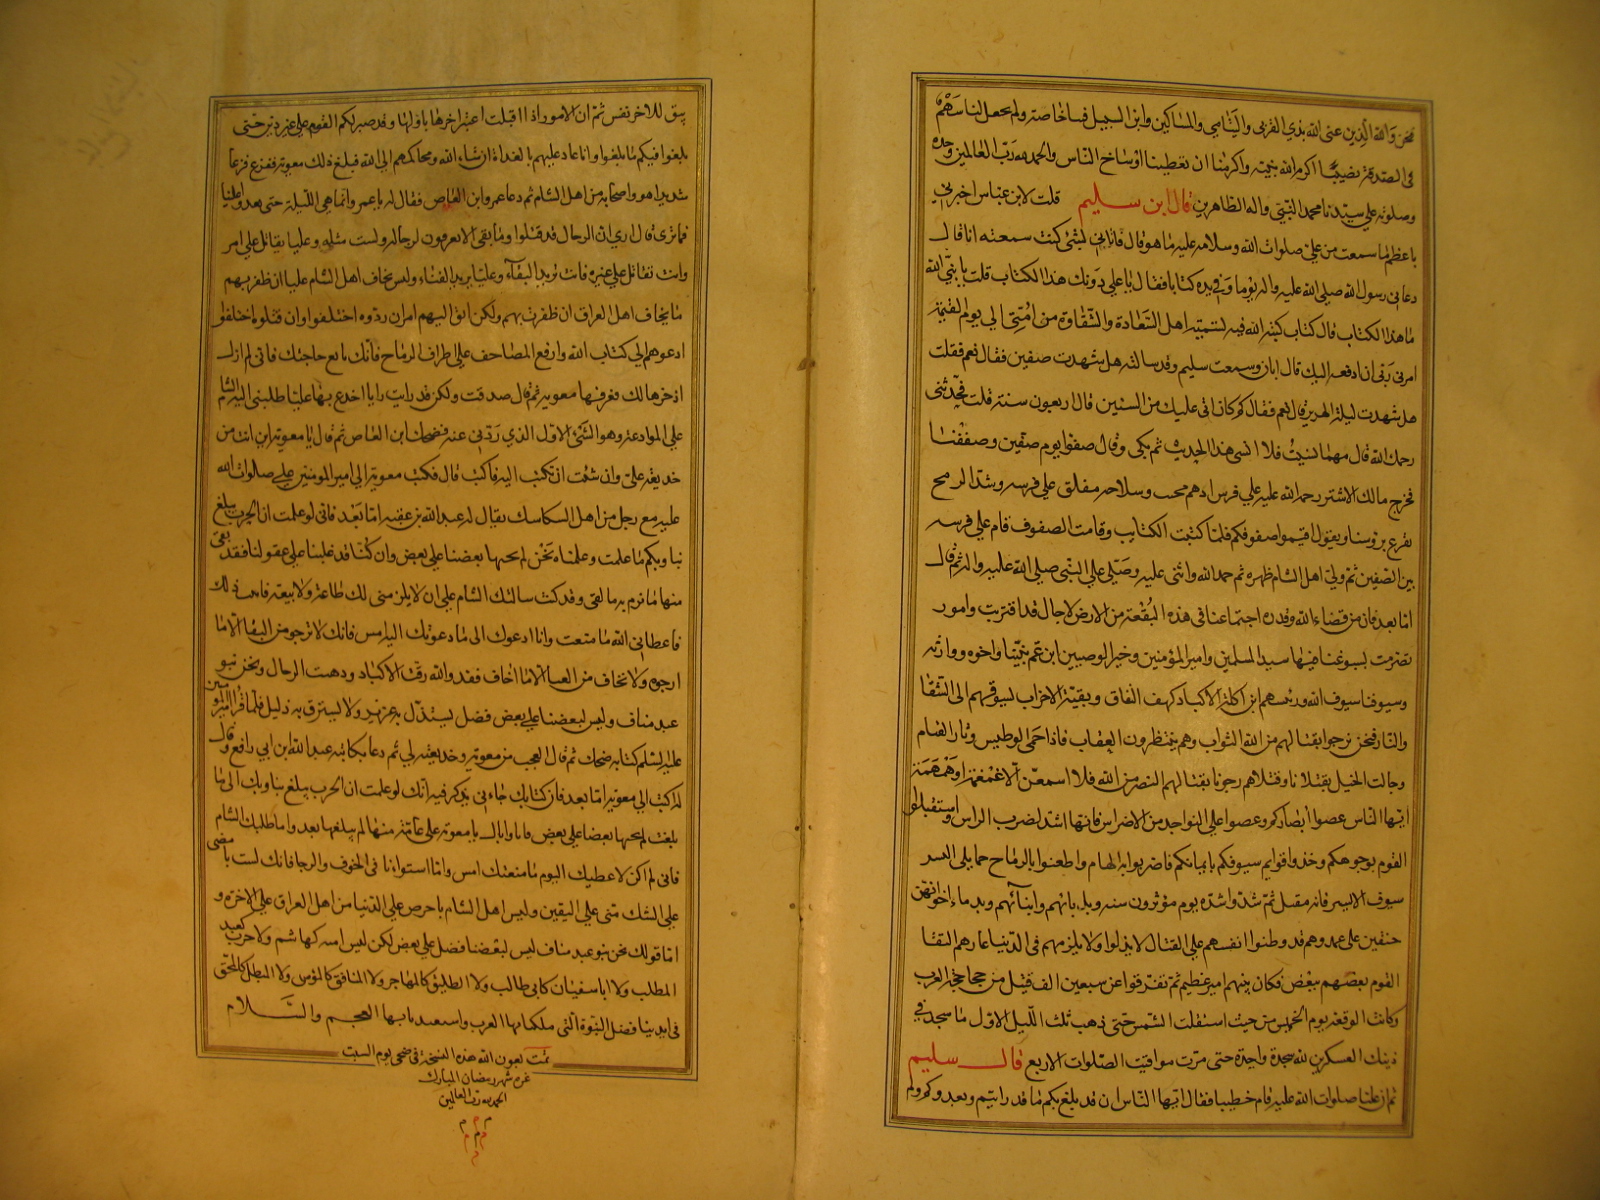 نحن والله الذين عنى الله بذي القربى واليتامى والمساكين وابن السبيل فينا خاصة ولم يجعل لنا سهم
في الصدقة نصيبا اكرم الله نبيه واكرمنا ان يطعمنا اوساخ الناس والحمد لله رب العالمين وحده
وصلوته على سيدنا محمد النبي واله الطاهرين قال ابن سليم قلت لابن عباس اخبرني
باعظم ما سمعت من علي صلوات الله وسلامه عليه ما هو قال فاتاني بشئ كنت سمعته انا قال
دعاني رسول الله صلى الله عليه واله يوما وفي يده كتاب فقال يا علي دونك هذا الكتاب قلت يا نبي الله
ما هذا الكتاب قال كتاب كتبه الله فيه تسمية اهل السعادة والشقاوة من امتي الى يوم القيمة
امرني ربي ان ادفعه اليك قال ابان وسمعت سليم وقد سالته هل شهدت صفين فقال نعم فقلت
هل شهدت ليلة الهرير قال نعم فقال كم كان اتى عليك من السنين قال اربعون سنة قلت فحدثني
رحمك الله قال مهما نسيت فلا انسى هذا الحديث ثم بكى وقال صفوا يوم صفين وصففنا
فخرج مالك الاشتر رحمه الله عليه على فرس ادهم محب وسلاحه معلق على فرسه وبيده الرمح
يقرع به رؤسنا ويقول اقيموا صفوفكم فلما كتبت الكتايب وقامت الصفوف قام على فرسه
بين الصفين ثم ولى اهل الشام ظهره ثم حمد الله واثنى عليه وصلى على النبي صلى الله عليه واله ثم قال
اما بعد فان من قضاء الله وقدره اجتماعنا في هذه البقعة من الارض لاجال قد اقتربت وامور
تصرمت يسوغنا فيها سيد المسلمين وامير المؤمنين وخير الوصيين ابن عم نبينا واخوه ووارثه
وسيوفنا سيوف الله ورئيسهم ابن اكلة الاكباد وكهف النفاق وبقية الاحزاب يسوقهم الى الشقا
والنار فنحن نرجو بقتالهم من الله الثواب وهم ينتظرون العقاب فاذا حمى الوطيس وثار القتام
وجالت الخيل بقتلانا وقتلاهم رجونا بقتالهم النصر من الله فلا اسمعن الا غمغمة او همهمة
ايها الناس غضوا ابصاركم وعضوا على النواجد من الاضراس فانها اشد لضرب الراس واستقبلوا
القوم بوجوهكم وخذوا قوايم سيوفكم بايمانكم فاضربوا به الهام واطعنوا بالرماح مما يلي السر
حنقين على عدوهم قد وطنوا انفسهم على القتال لا يذلوا ولا يلزمهم في الدنيا عار ثم التقا
القوم بعضهم ببعض فكان بينهم امر عظيم ثم تفرقوا عن سبعين الف قتيل من جحاجحة العرب
وكانت الوقعة يوم الخميس من حيث استقلت الشمس حتى ذهب ثلث الليل الاول ما سجد في
ذينك العسكرين لله سجدة واحدة حتى مرت مواقيت الصلوات الاربع قال سليم
ثم ان عليا صلوات الله عليه قام خطيبا فقال ايها الناس ان قد بلغ بكم ما قد رايتم وبعدوكم ولم
يبق الا اخر نفس ثم ان الامور اذا اقبلت اعتبر اخرها باولها وقد صبر لكم القوم على غير دين حتى
بلغوا فيكم ما بلغوا وانا غاد عليهم بالغداة ان شاء الله ومحاكمهم الى الله فبلغ ذلك معوية ففزع فزعا
شديدا هو واصحابه من اهل الشام ثم دعا عمرو ابن العاص فقال له يا عمرو انما هي الليلة حتى يعدو علينا
فما ترى قال ارى ان الرجال قد قتلوا وما بقي الا يعرفون لرجاله ولست مثله وعليا يقاتل على امر
وانت تقاتل على غيره فانت تريد البقاء وعليا يريد الفناء وليس يخاف اهل الشام عليا ان ظفر بهم
ما يخاف اهل العراق ان ظفرت بهم ولكن الق اليهم امرا ان ردوه اختلفوا وان قبلوه اختلفوا
ادعوهم الى كتاب الله وارفع المصاحف على اطراف الرماح فانك بالغ حاجتك فاني لم ازل
اذخرها لك فعرفها معوية ثم قال صدقت ولكن قد رايت رايا اخدع بها عليا طلبتي اليه الشام
على الموادعة وهو الشئ الاول الذي ردني عنه فضحك ابن العاص ثم قال يا معوية اين انت من
خديعة علي وان شئت ان تكتب اليه فاكتب قال فكتب معوية الى امير المؤمنين علي صلوات الله
عليه مع رجل من اهل السكاسك يقال له عبد الله بن عقبة اما بعد فاني لو علمت ان الحرب يبلغ
بنا وبكم ما علمت وعلمناه نحن لم يجنها بعضنا على بعض وان كنا قد غلبنا على عقولنا فقد بقي
منها ما نرم به ما بقي وقد كنت سالتك الشام على ان لا يلزمني لك طاعة ولا بيعة فابيت ذلك
فاعطاني الله ما منعت وانا ادعوك الى ما دعوتك اليه امس فانك لا ترجو من البقا الا ما
ارجوه ولا تخاف من الفنا الا ما اخاف فقد والله رقت الاكباد وذهبت الرجال ونحن بنو
عبد مناف وليس لبعضنا على بعض فضل يستذل به عزيز ولا يسترق به ذليل فلما قرا امير المؤمنين
عليه السلم كتابه ضحك ثم قال العجب من معوية وخديعته لي ثم دعا بكاتبه عبد الله ابن ابي رافع وقال
له اكتب الى معوية اما بعد فان كتابك جاءني يذكر فيه انك لو علمت ان الحرب يبلغ بنا وبك الى ما
بلغت لم يجنها بعضنا على بعض فانا واياك يا معوية على غاية منها لم يبلغها بعد واما طلبك الشام
فاني لم اكن لاعطيك اليوم ما منعتك امس واما استوائنا في الخوف والرجا فانك لست بامضى
على الشك مني على اليقين وليس اهل الشام باحرص على الدنيا من اهل العراق على الاخرة و
اما قولك نحن بنو عبد مناف ليس لبعضنا فضل على بعض لكن ليس امية كهاشم ولا حرب كعبد
المطلب ولا ابا سفيان كابي طالب ولا الطليق كالمهاجر ولا المنافق كالمؤمن ولا المبطل كالمحق
في ايدينا فضل النبوة التي ملكنا بها العرب واستعبدنا بها العجم والسلام
تمت بعون الله هذه النسخة في ضحى يوم السبت
غره شهر رمضان المبارك
الحمد لله رب العالمين